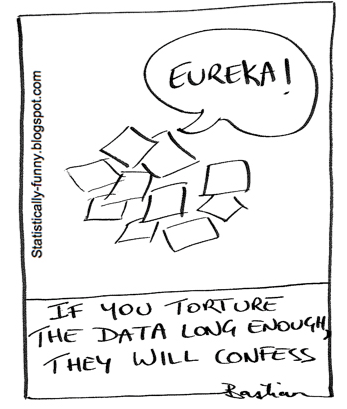 EUREKA!
Statistically-funny.blogspot.com
IF YOU TORTURE
THE DATA LONG ENOUGH,
THEY WILL CONFESS
Bastian